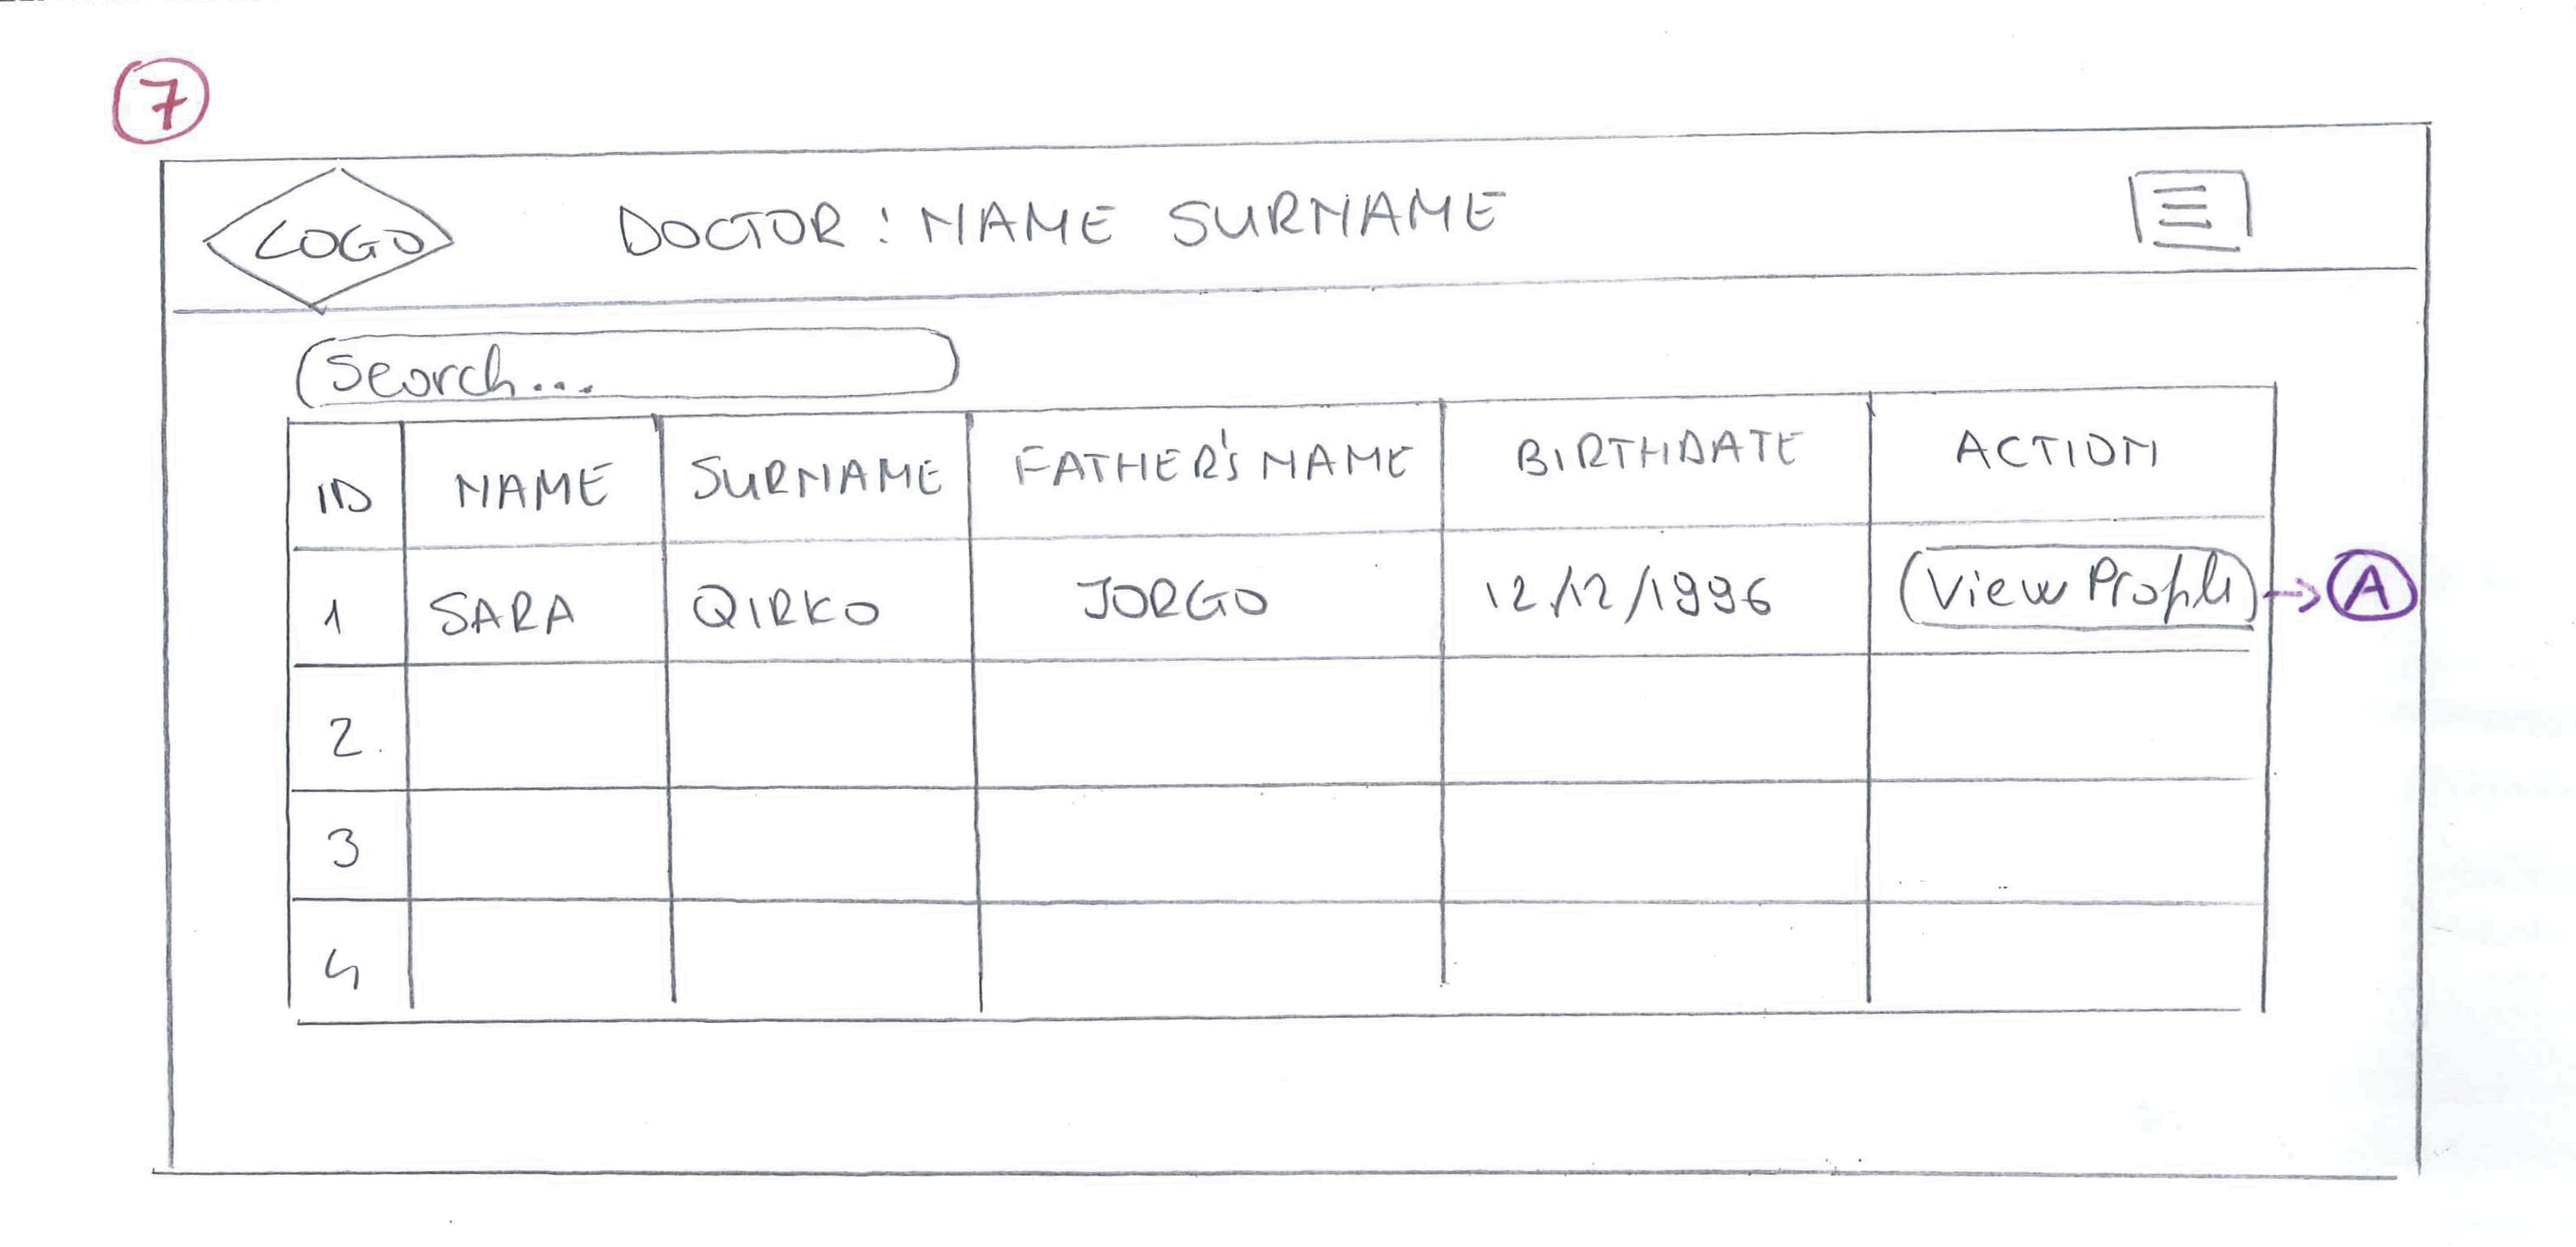 7
LOGO DOCTOR : NAME SURNAME
Search...
ID NAME SURNAME FATHER'S NAME BIRTHDATE ACTION
1 SARA QIRKO JORGO 12/12/1996 View Profile A
2.
3
4